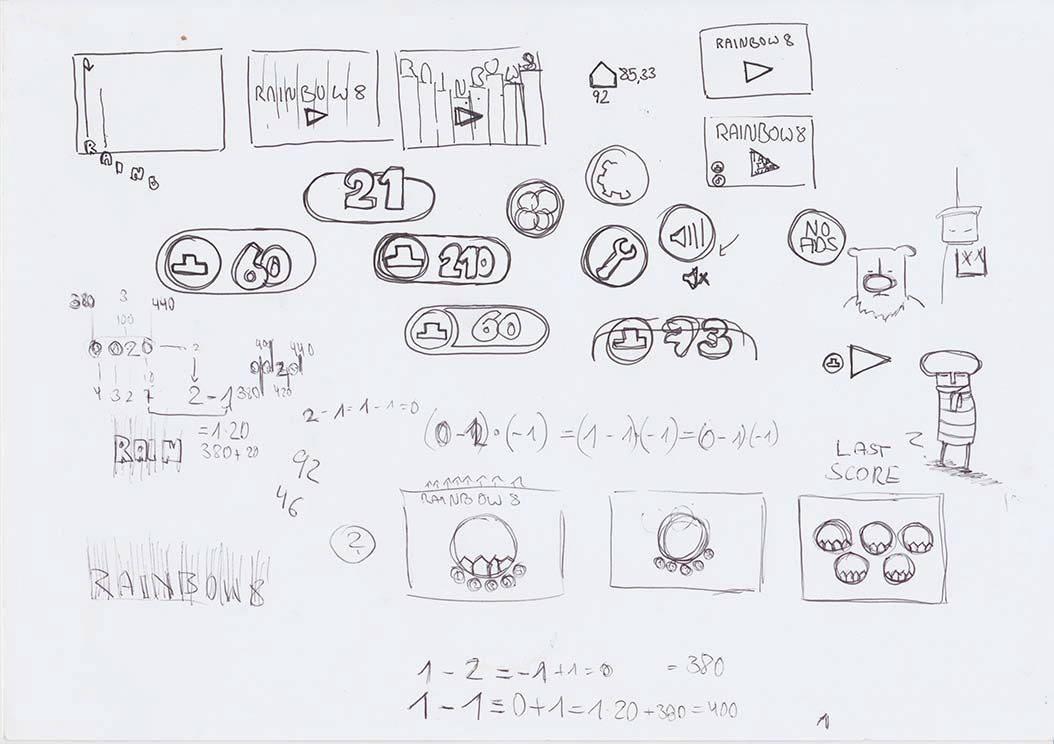 R
RAINB
RAINBOW8
RAINBOW8
85,33
92
RAINBOW 8
RAINBOW8
21
60
210
NO
ADS
XX
60
73
380
3
440
100
0 0 2 0
2
4 3 2 7
10
2-1
440
380
420
= 1·20
380+20
RAIN
2-1=1-1=0
(0-12)·(-1) = (1-1)·(-1) = (0-1)(-1)
92
46
LAST
SCORE
?
RAINBOW8
2
RAINBOW8
1-2=-1+1=0 =380
1-1=0+1=1·20+380=400
1